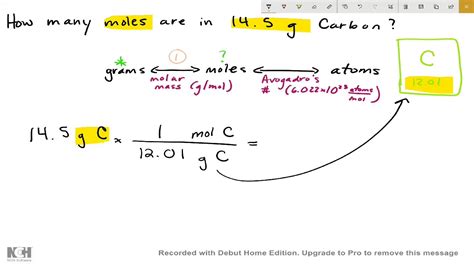 How many moles are in 14.5 g Carbon?
* ① ?
grams ⟷ moles ⟷ atoms
molar mass (g/mol)
Avogadro's # (6.022x10²³ atoms/mol)
C
12.01
14.5 g C x 1 mol C / 12.01 g C =
NCH
Recorded with Debut Home Edition. Upgrade to Pro to remove this message